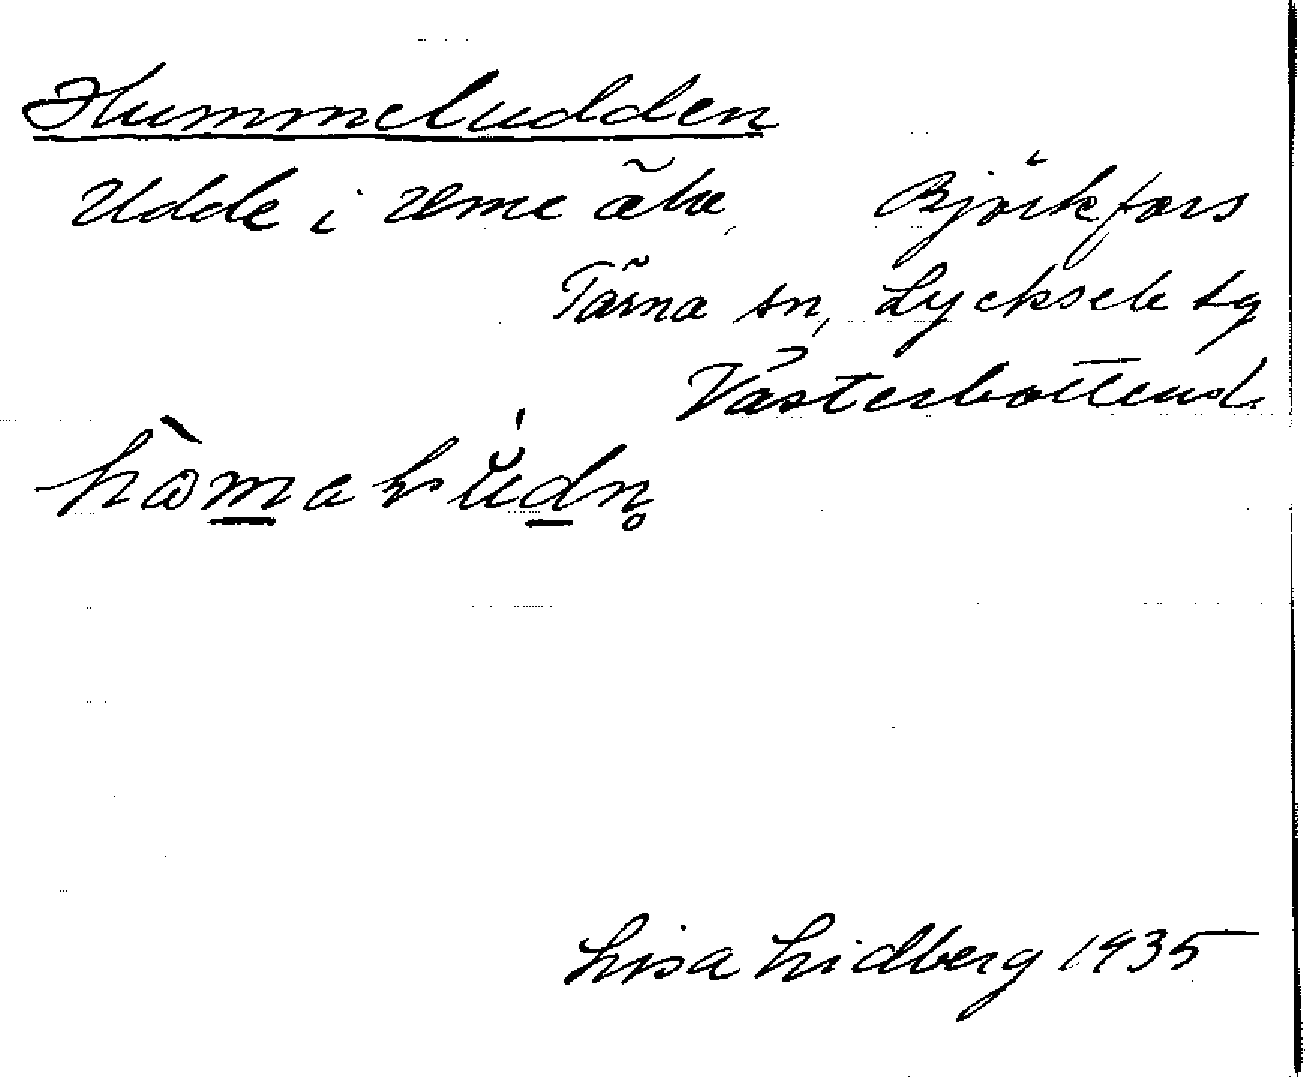 Hummeludden
Udde i Ume älv, Björkfors
Tärna sn, Lycksele lg
Västerbottens l.
Lisa Lidberg 1935